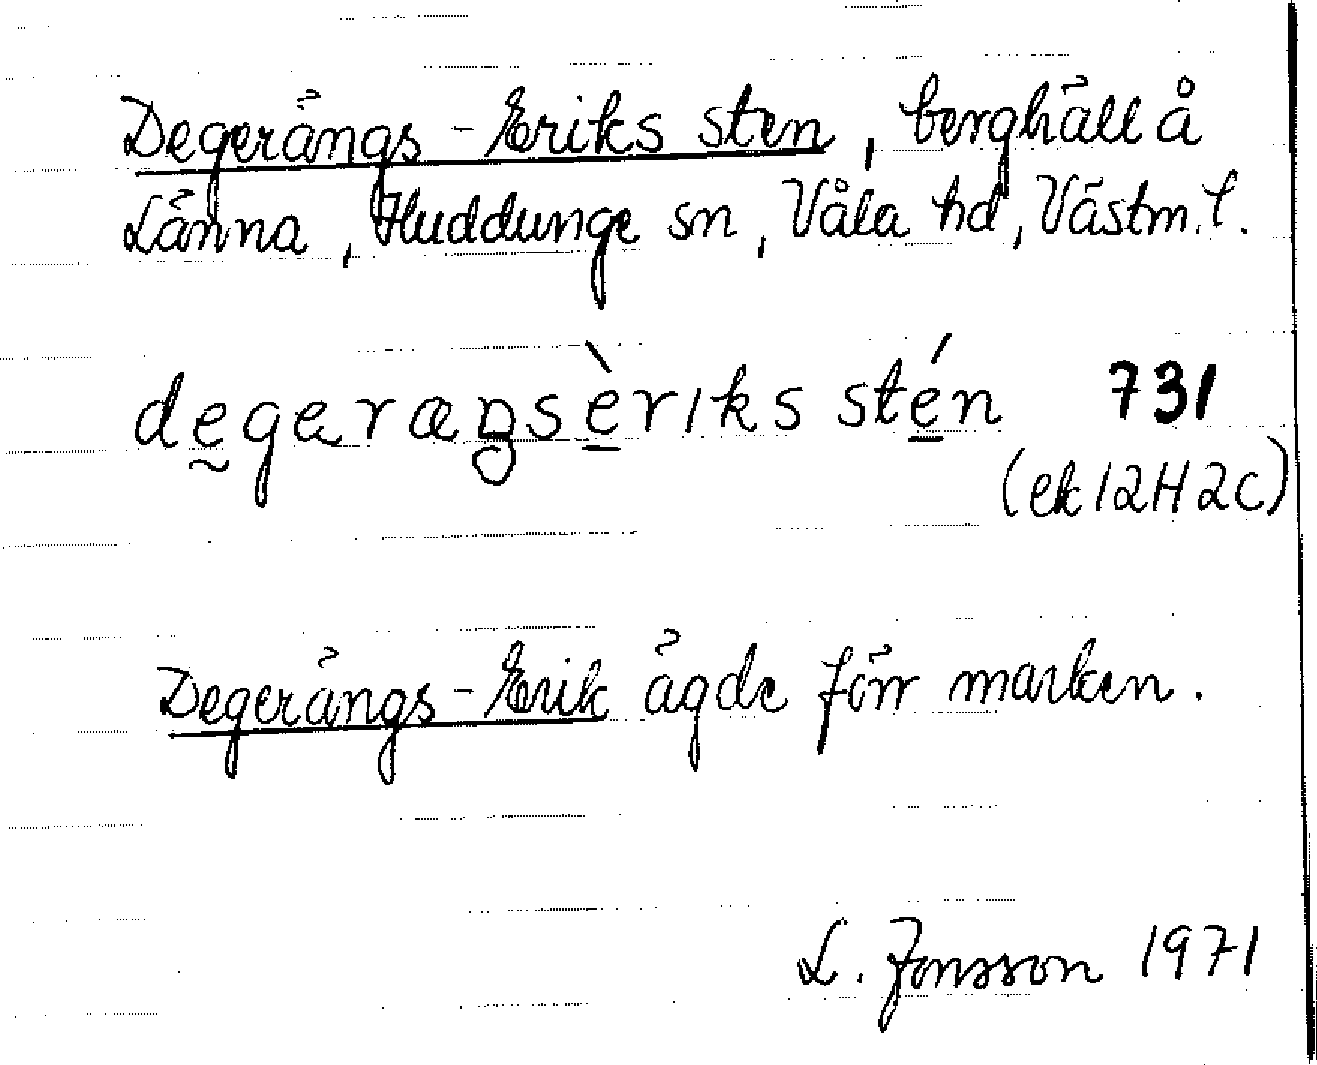 Degerängs-Eriks sten, berghäll å
Länna, Huddunge sn, Våla hd, Västm.l.
degeræŋsèriks stén 731
(ek 12H2c)
Degerängs-Erik ägde förr marken.
L. Jonsson 1971